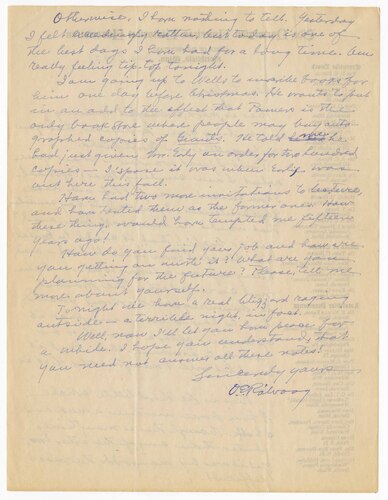 Otherwise, I have nothing to tell. Yesterday
I felt rather, but today is one of
the best days I have had for a long time. Am
really feeling tip top tonight.
I am going up to Wells to inscribe books for
him one day before Christmas. He wants to put
in an add to the effect that is the
only book store where people may buy auto-
graphed copies of Giants. He told me he
had just given Mr. Eoly an order for two hundred
copies — I spose it was when Eoly was
out here this fall.
Have had two more invitations to lecture,
and have treated them as the former ones. How
these things would have tempted me fifteen
years ago!
How do you find your job and how are
you getting on with it? What are you
planning for the future? Please, tell me
more about yourself.
Tonight we have a real blizzard raging
outside — a terrible night, in fact.
Well, now I'll let you have peace for
a while. I hope you understand that
you need not answer all these notes!
Sincerely yours
O. E. Rölvaag